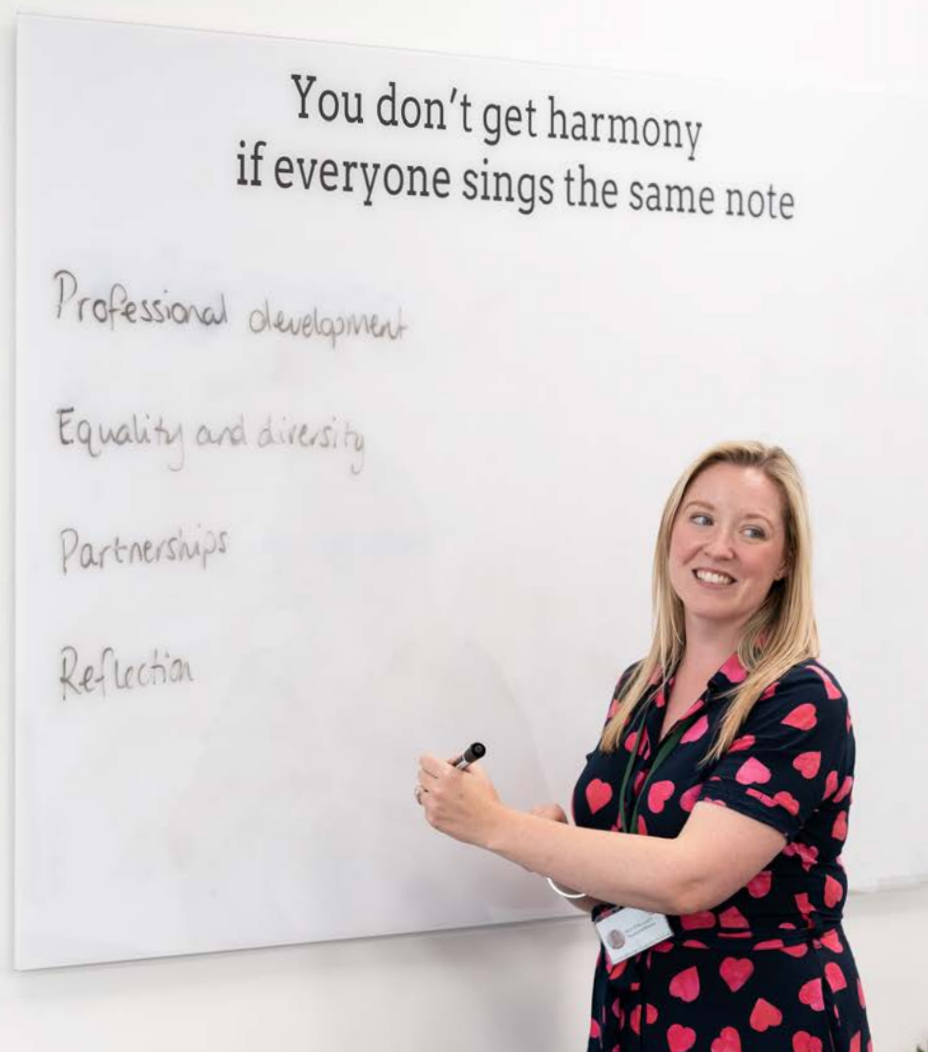 You don't get harmony
if everyone sings the same note
Professional development
Equality and diversity
Partnerships
Reflection